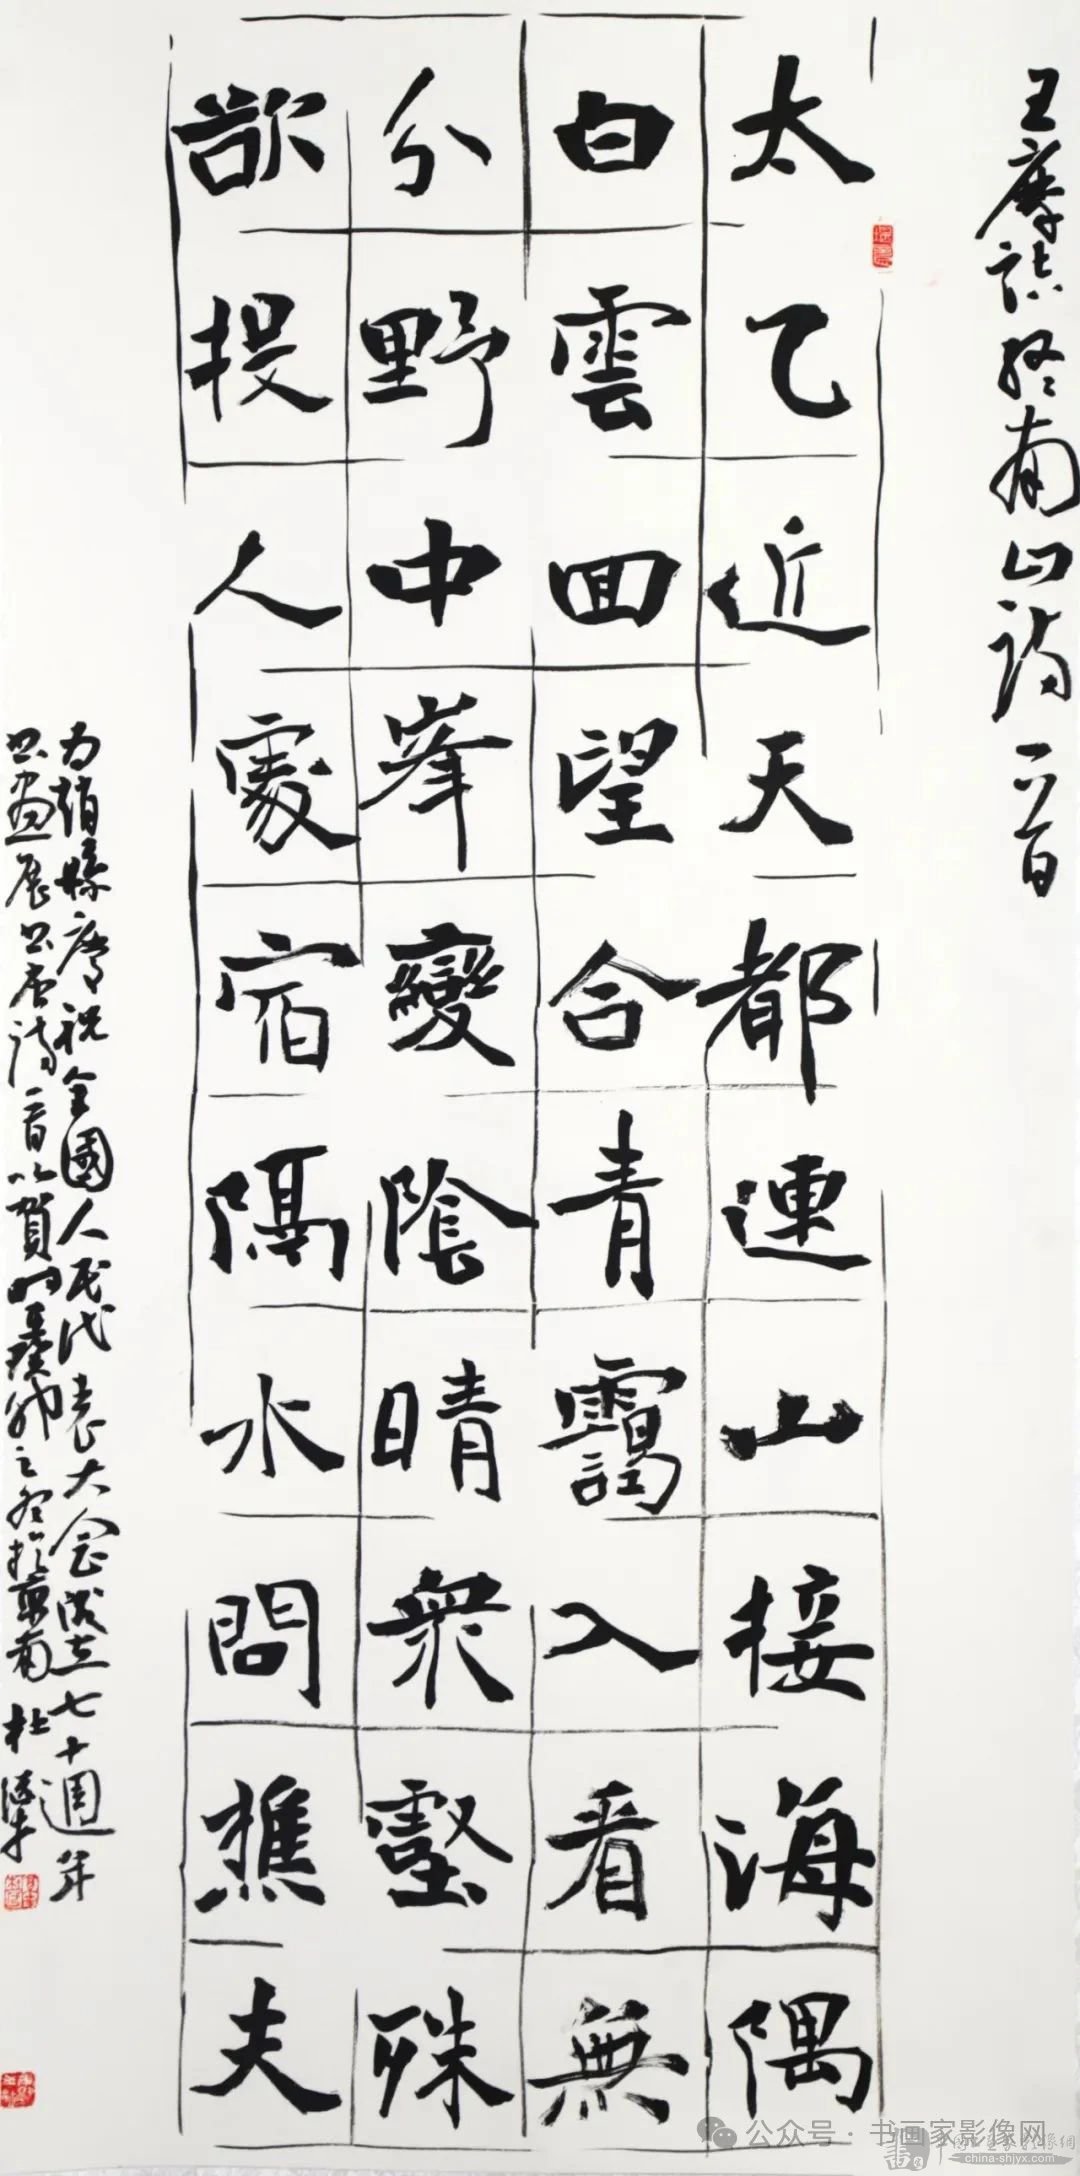 王摩詰終南山詩一首
太乙近天都連山接海隅
白雲回望合青靄入看無
分野中峯變陰晴衆壑殊
欲投人處宿隔水問樵夫
為趙縣慶祝全國人民代表大會成立七十週年
書畫展書唐詩一首以賀時癸卯之冬於南杜
公众号·书画家影像网
china-shjyx.com